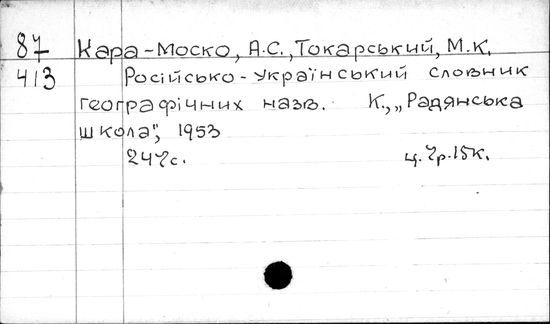 87 Кара-Моско, А.С., Токарський, М.К.
413 Російсько-український словник
географічних назв. К., „Радянська
школа", 1953
247с. ц. 7р.15к.